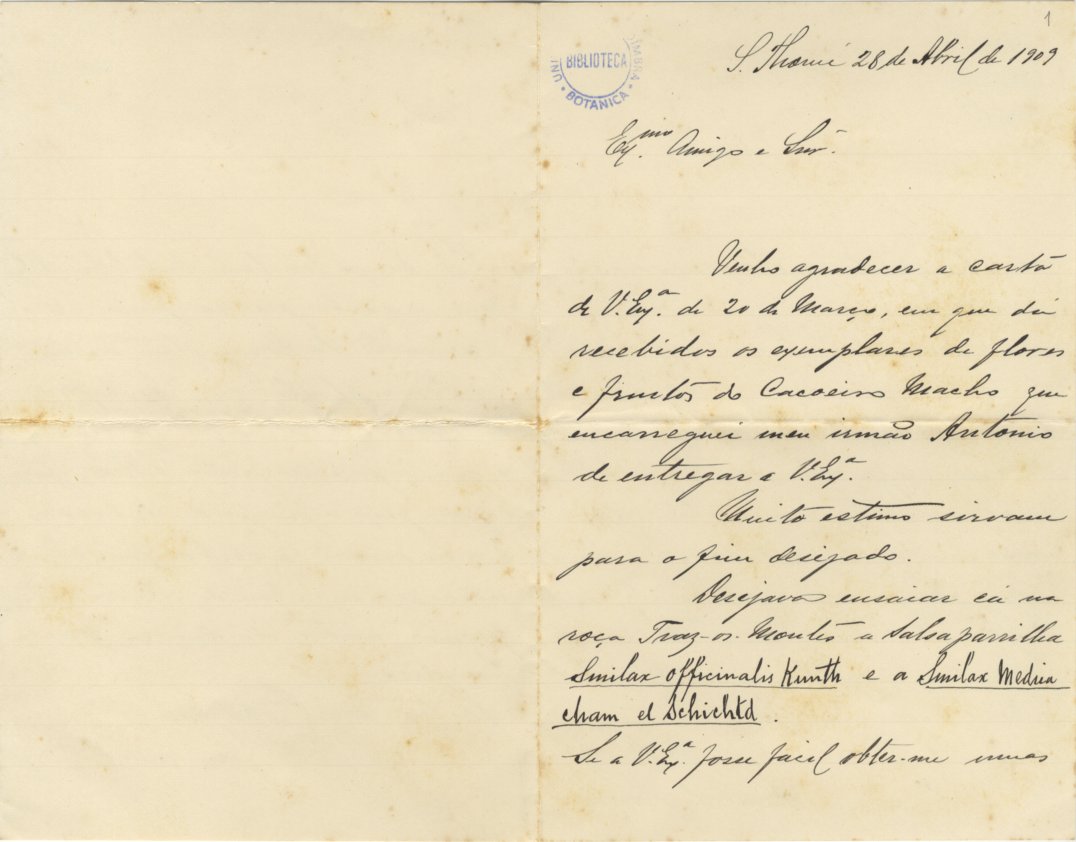 1
S. Thomé 28 de Abril de 1909
UNI COIMBRA
BIBLIOTECA
BOTANICA
Ex.mo Amigo e Snr.
Venho agradecer a carta
de V. Ex.a de 20 de Março, em que dá
recebidos os exemplares de flores
e fructos do Cacoeiro Macho que
encarreguei meu irmão Antonio
de entregar a V. Ex.a
Muito estimo sirvam
para o fim desejado.
Desejava ensaiar cá na
roça Traz-os-Montes a salsaparrilha
Smilax officinalis Kunth e a Smilax Medica
cham et Schichtd.
Se a V. Ex.a fosse facil obter-me umas